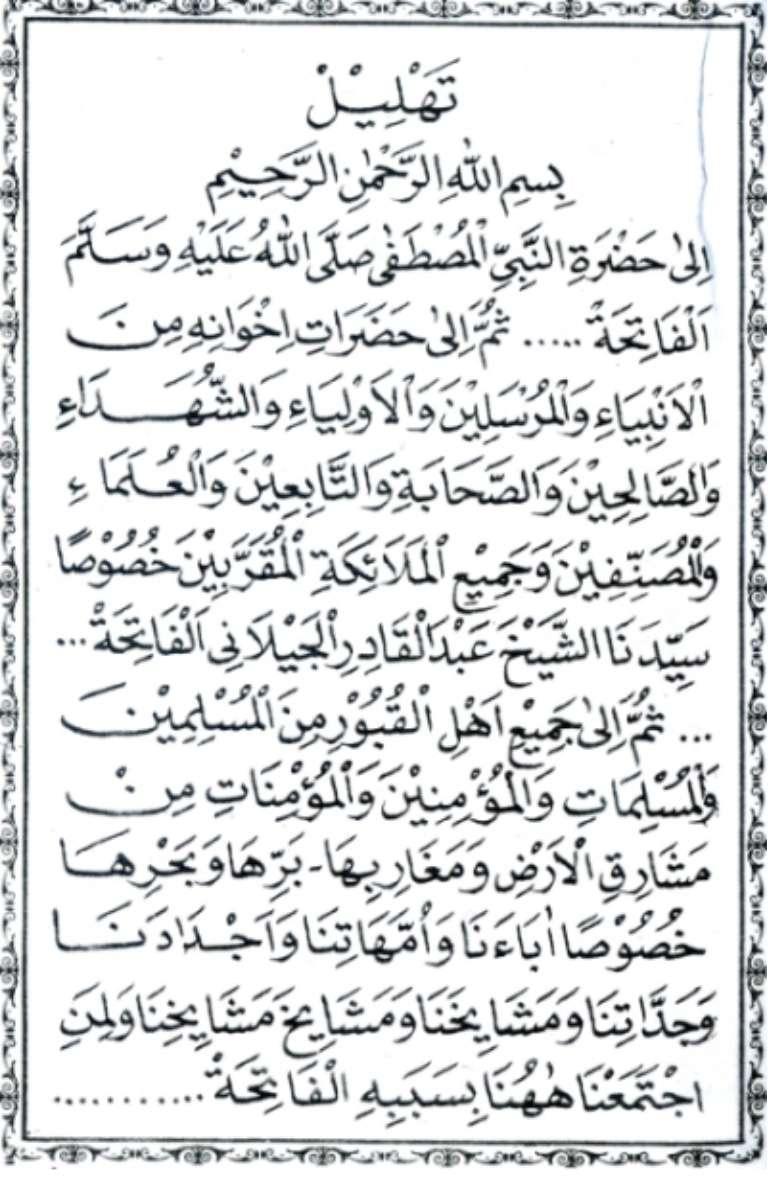 تَهْلِيْلْ
بِسْمِ اللهِ الرَّحْمٰنِ الرَّحِيْمِ
اِلىٰ حَضْرَةِ النَّبِيِّ الْمُصْطَفٰى صَلَّى اللهُ عَلَيْهِ وَسَلَّمَ
اَلْفَاتِحَةْ ..... ثُمَّ اِلىٰ حَضَرَاتِ اِخْوَانِهِ مِنَ
الْاَنْبِيَاءِ وَالْمُرْسَلِيْنَ وَالْاَوْلِيَاءِ وَالشُّهَدَاءِ
وَالصَّالِحِيْنَ وَالصَّحَابَةِ وَالتَّابِعِيْنَ وَالْعُلَمَاءِ
وَالْمُصَنِّفِيْنَ وَجَمِيْعِ الْمَلَائِكَةِ الْمُقَرَّبِيْنَ خُصُوْصًا
سَيِّدَنَا الشَّيْخَ عَبْدَالْقَادِرِ الْجَيْلَانِى اَلْفَاتِحَةْ ...
... ثُمَّ اِلىٰ جَمِيْعِ اَهْلِ الْقُبُوْرِ مِنَ الْمُسْلِمِيْنَ
وَالْمُسْلِمَاتِ وَالْمُؤْمِنِيْنَ وَالْمُؤْمِنَاتِ مِنْ
مَشَارِقِ الْاَرْضِ وَمَغَارِبِهَا - بَرِّهَا وَبَحْرِهَا
خُصُوْصًا اٰبَاءَنَا وَاُمَّهَاتِنَا وَاَجْدَادَنَا
وَجَدَّاتِنَا وَمَشَايِخَنَا وَمَشَايِخَ مَشَايِخِنَا وَلِمَنِ
اجْتَمَعْنَا هٰهُنَا بِسَبَبِهِ الْفَاتِحَةْ ...........